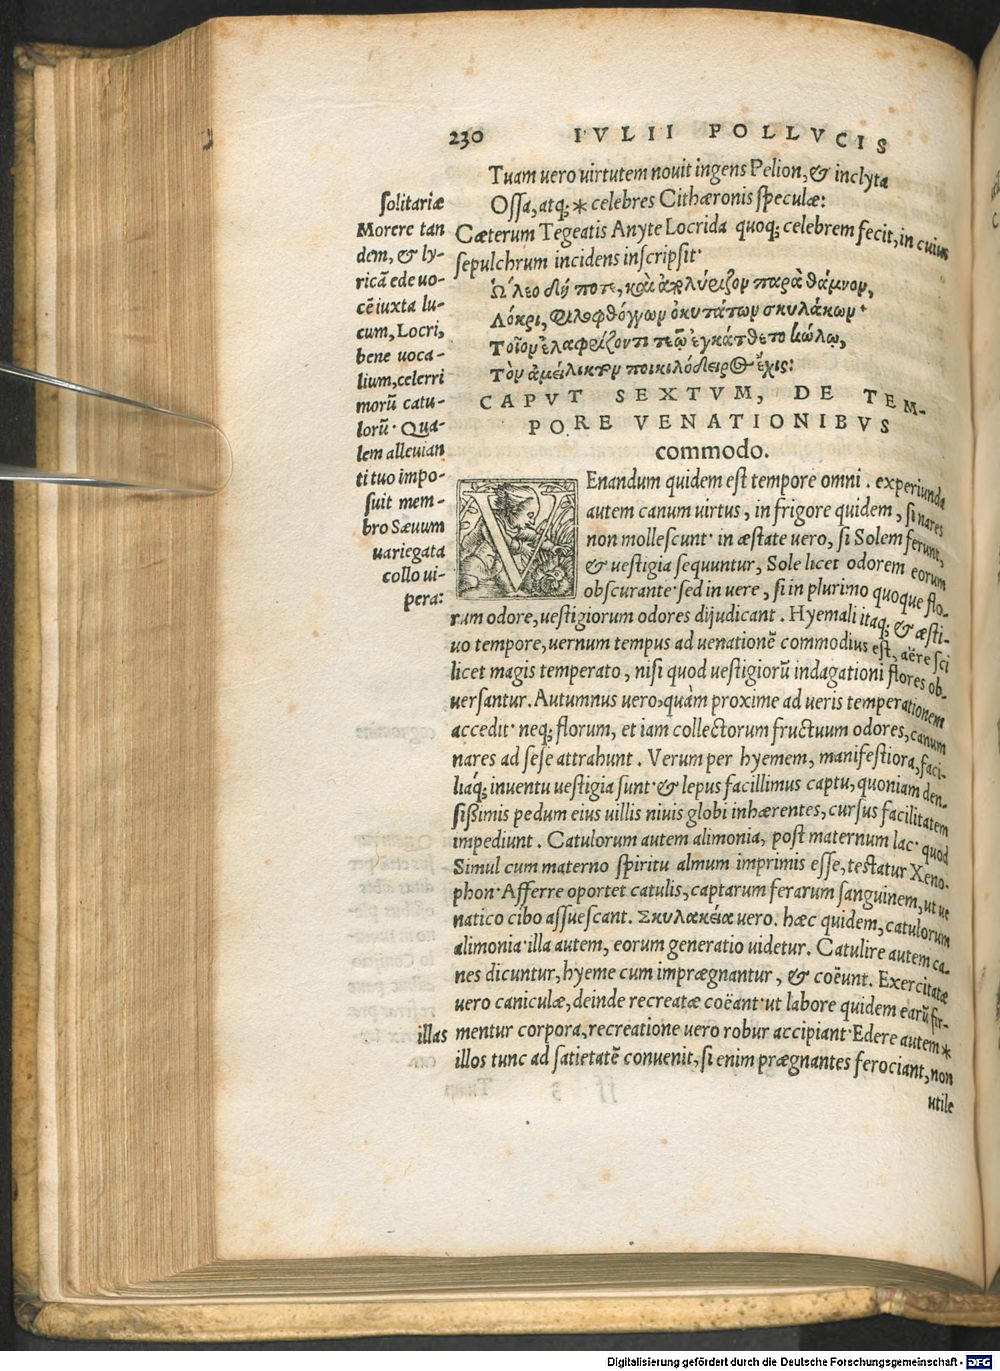 230 IVLII POLLVCIS
Tuam uero uirtutem nouit ingens Pelion, & inclyta
Ossa, atq; * celebres Cithæronis speculæ:
Cæterum Tegeatis Anyte Locrida quoq; celebrem fecit, in cuius
sepulchrum incidens inscripsit·
Τοῖον ἐλαφρίζοντι τεῷ ἐγκάτθετο κώλῳ,
Τὸν ἀμείλικτον ποικιλόδειρος ἔχις:
solitariæ
Morere tan
dem, & ly-
ricã ede uo-
cẽ iuxta lu-
cum, Locri,
bene uoca-
lium, celerri
morũ catu-
lorũ· Qua-
lem alleuian
ti tuo impo-
suit mem-
bro Sæuum
uariegata
collo ui-
pera:
CAPVT SEXTVM, DE TEM-
PORE VENATIONIBVS
commodo.
VEnandum quidem est tempore omni . experiunda
autem canum uirtus, in frigore quidem, si nares
non mollescunt· in æstate uero, si Solem ferunt,
& uestigia sequuntur, Sole licet odorem eorum
obscurante· sed in uere, si in plurimo quoque flo-
rum odore, uestigiorum odores dijudicant. Hyemali itaq; & æsti-
uo tempore, uernum tempus ad uenationẽ commodius est, aëre sci
licet magis temperato, nisi quod uestigiorũ indagationi flores ob-
uersantur. Autumnus uero, quàm proxime ad ueris temperationem
accedit· neq; florum, et iam collectorum fructuum odores, canum
nares ad sese attrahunt. Verum per hyemem, manifestiora, faci-
liáq; inuentu uestigia sunt· & lepus facillimus captu, quoniam den-
sißimis pedum eius uillis niuis globi inhærentes, cursus facilitatem
impediunt. Catulorum autem alimonia, post maternum lac· quod
Simul cum materno spiritu almum imprimis esse, testatur Xeno-
phon· Afferre oportet catulis, captarum ferarum sanguinem, ut ue
natico cibo assuescant. Σκυλακεία uero. hæc quidem, catulorum
alimonia· illa autem, eorum generatio uidetur. Catulire autem ca-
nes dicuntur, hyeme cum imprægnantur, & coëunt. Exercitatæ
uero caniculæ, deinde recreatæ coëant· ut labore quidem earũ fir-
illas mentur corpora, recreatione uero robur accipiant· Edere autem *
illos tunc ad satietatẽ conuenit, si enim prægnantes ferociant, non
utile
Digitalisierung gefördert durch die Deutsche Forschungsgemeinschaft - DFG